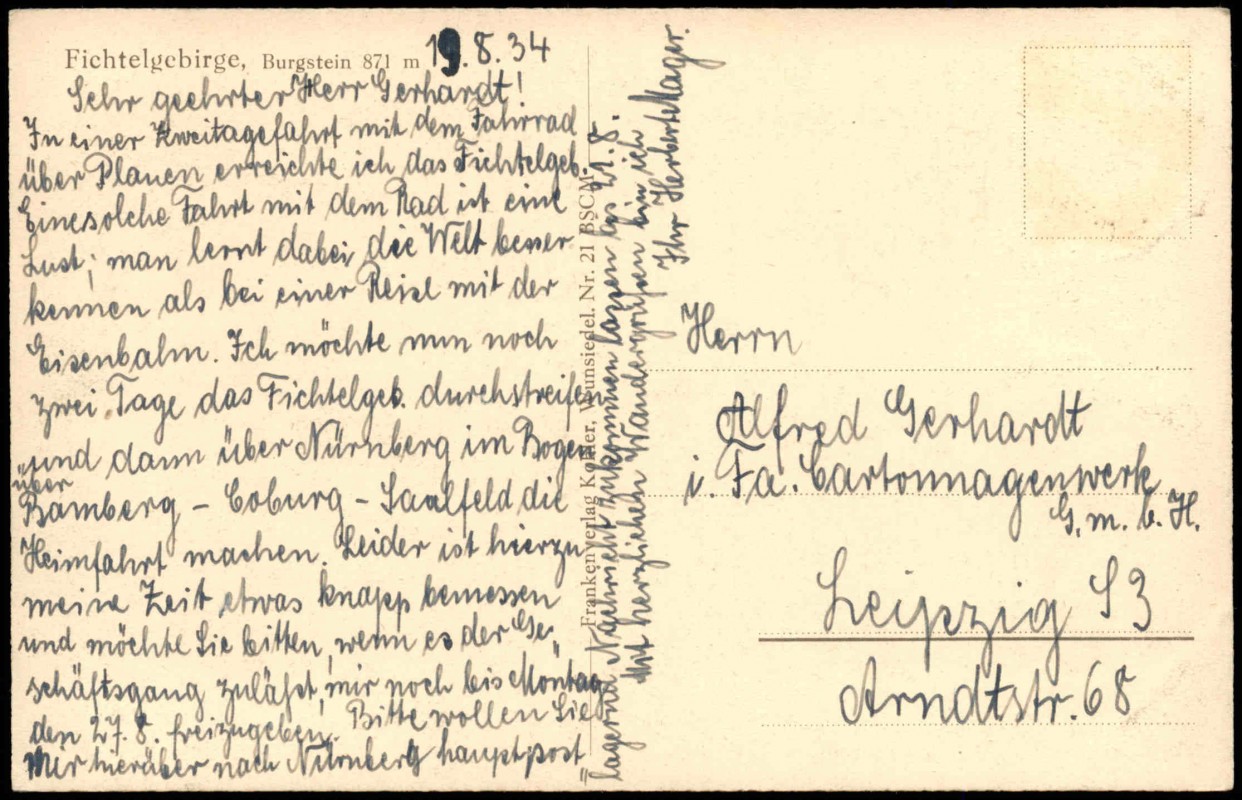 Fichtelgebirge, Burgstein 871 m
19.8.34
Sehr geehrter Herr Gerhardt!
In einer Zweitagefahrt mit dem Fahrrad
über Plauen erreichte ich das Fichtelgeb.
Eine solche Fahrt mit dem Rad ist eine
Lust; man lernt dabei die Welt besser
kennen als bei einer Reise mit der
Eisenbahn. Ich möchte nun noch
zwei Tage das Fichtelgeb. durchstreifen
und dann über Nürnberg im Bogen
über
Bamberg - Coburg - Saalfeld die
Heimfahrt machen. Leider ist hierzu
meine Zeit etwas knapp bemessen
und möchte Sie bitten, wenn es der Ge-
schäftsgang zuläßt, mir noch bis Montag
den 27.8. freizugeben. Bitte wollen Sie
mir hierüber nach Nürnberg hauptpost
=lagernd Nachricht zukommen lassen bis 21.8.
Mit herzlichen Wandergrüßen bin ich
Ihr Herbert Mager.
Frankenverlag Kohler, Wunsiedel. Nr. 21 BSCM
Herrn
Alfred Gerhardt
i. Fa. Cartonnagenwerk
G.m.b.H.
Leipzig S3
Arndtstr. 68